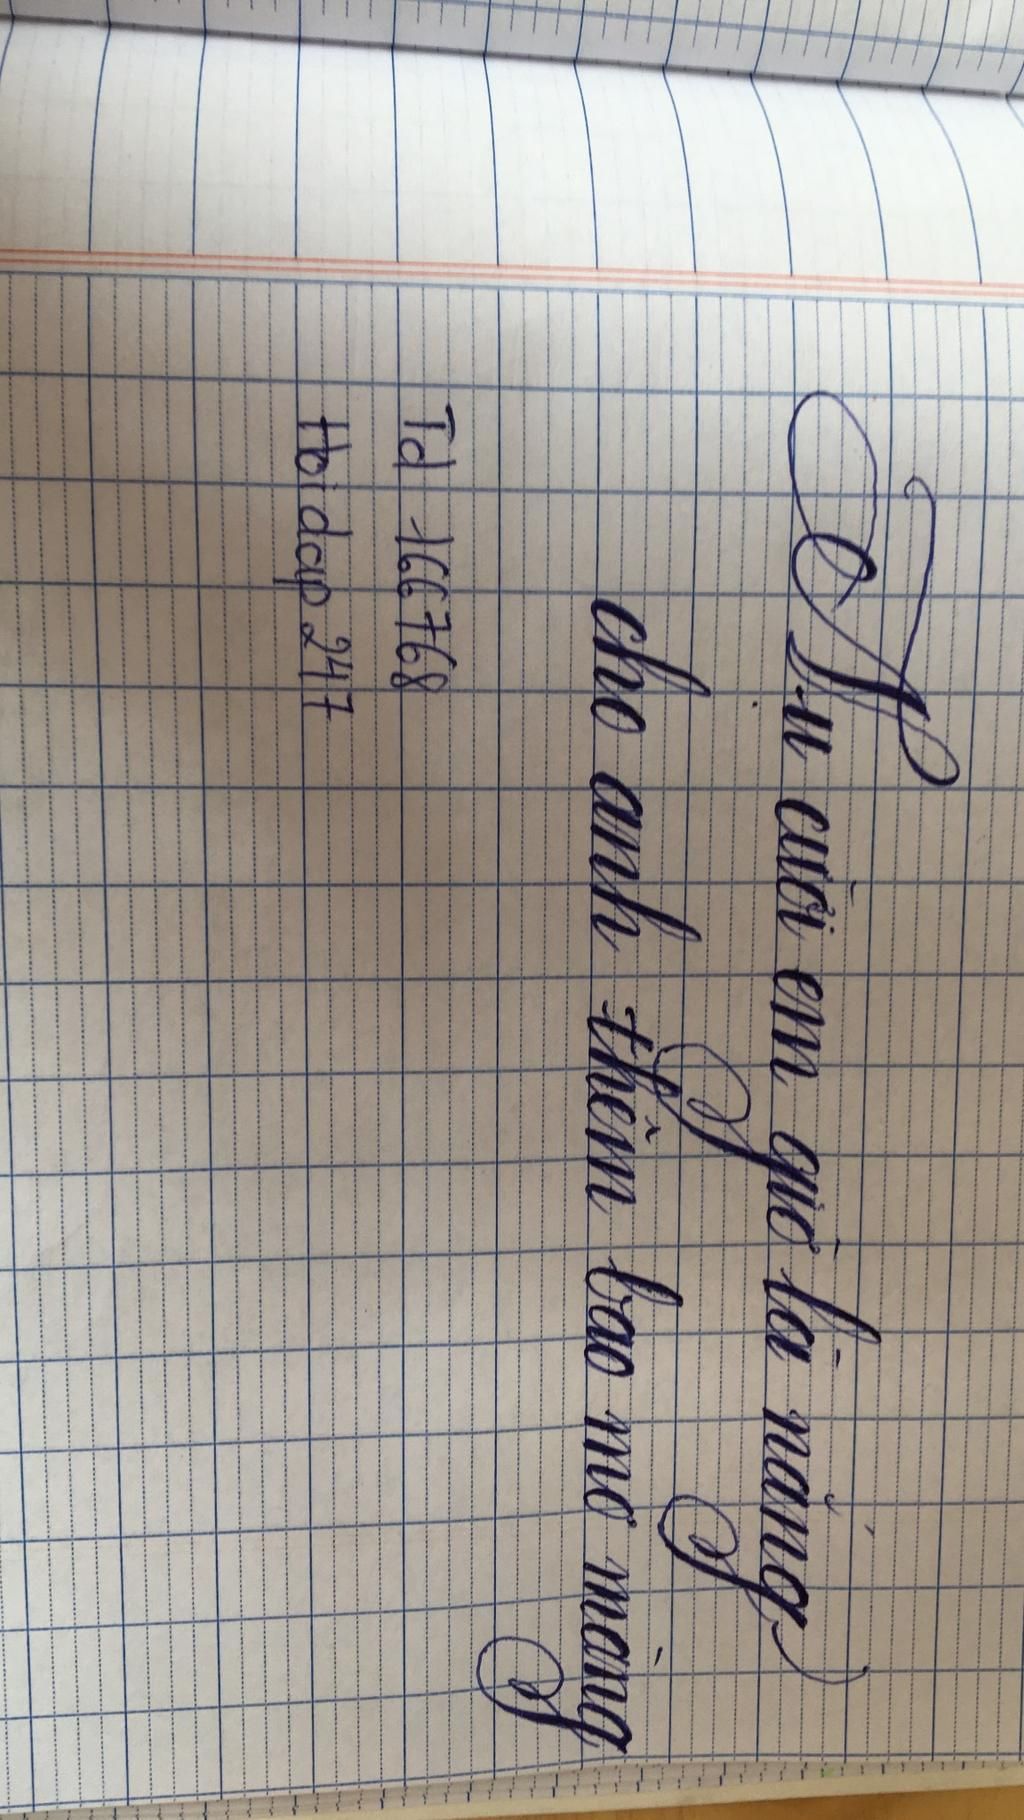 Nụ cười em giờ là nắng
cho anh thêm bao mơ màng
Td 166768
Hoidap247